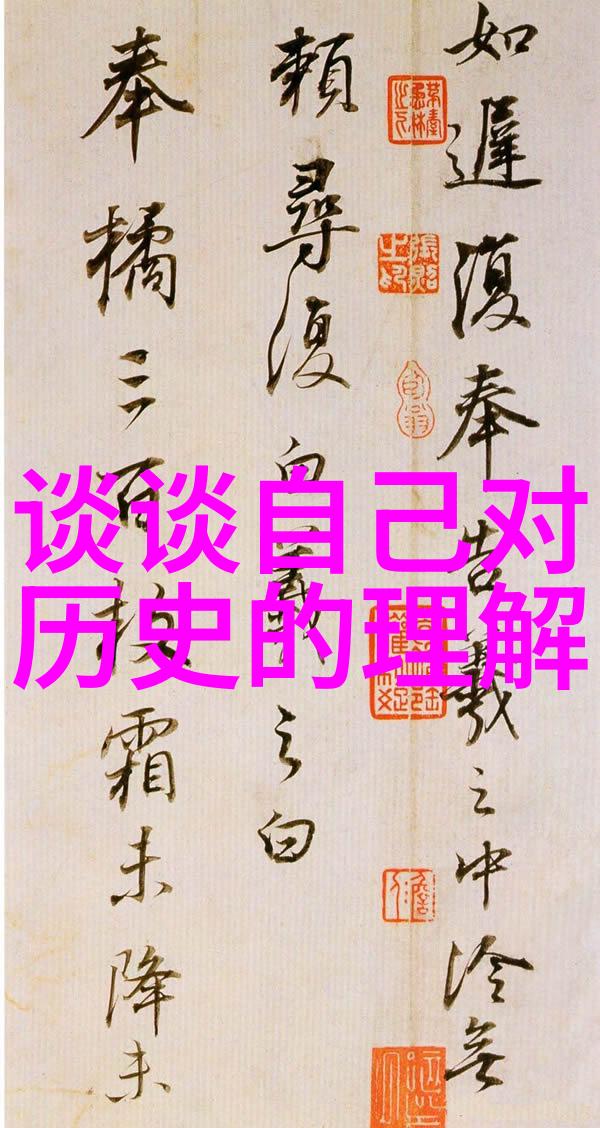 谈谈自己对
历史的理解
如遲復奉告羲之中冷無
賴尋復白羲之白
奉橘三百枚霜未降未